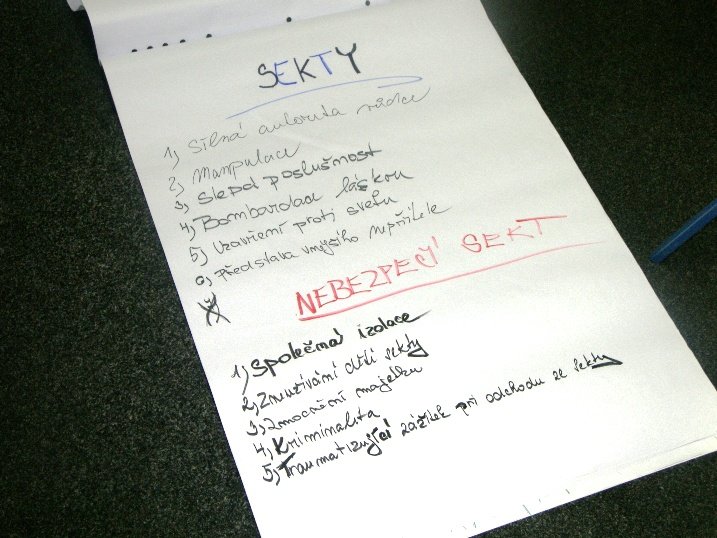 SEKTY
1) Silná autorita vůdce
2) Manipulace
3) Slepá poslušnost
4) Bombardování láskou
5) Uzavření proti světu
6) Představa vnějšího nepřítele
NEBEZPEČÍ SEKT
1) Společná izolace
2) Zneužívání dětí sekty
3) Zmocnění majetku
4) Kriminalita
5) Traumatizující zážitek při odchodu ze sekty